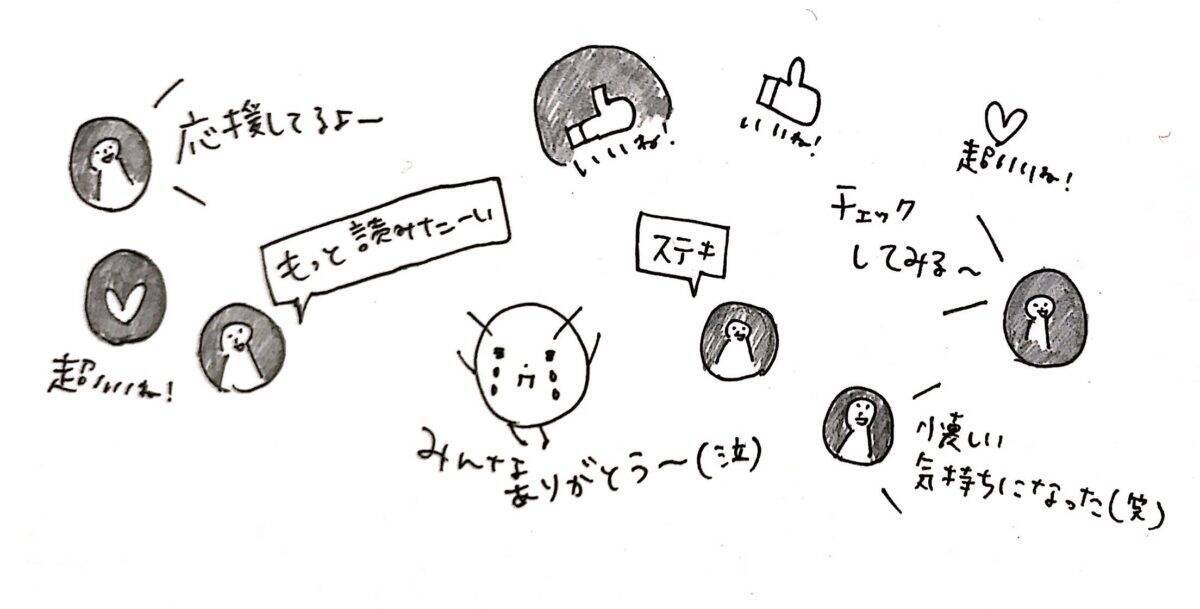 応援してるよ～
いいね!
いいね!
超いいね!
チェック
してみる～
もっと読みたーい
ステキ
超いいね!
みんなよ
ありがとう～(泣)
懐しい
気持ちになった(笑)